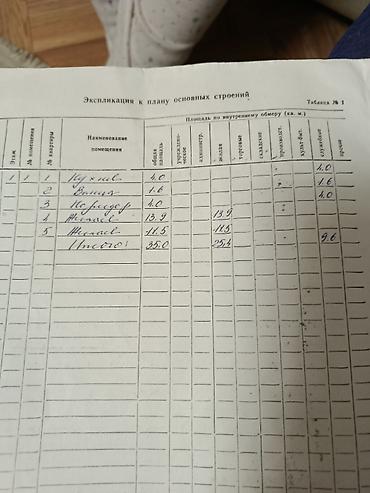 Экспликация к плану основных строений
Таблица № 1
Этаж
№ помещения
№ квартиры
Наименование помещения
Площадь по внутреннему обмеру (кв. м.)
общая площадь
учрежденческое
администр.
жилая
торговые
складские
производст.
культ-быт.
служебные
прочие
1 1 1 Кухня 4.0 4.0
2 Ванная 1.6 1.6
3 Коридор 4.0 4.0
4 Жилая 13.9 13.9
5 Жилая 11.5 11.5
Итого: 35.0 25.4 9.6